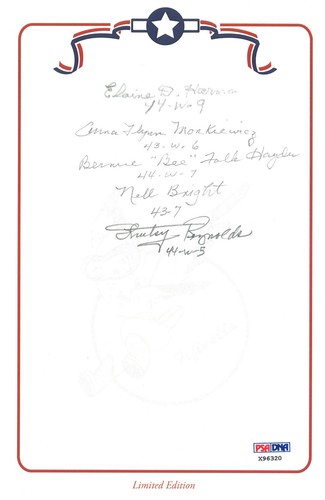 Elaine D. Harmon
44-W-9
Anna Flynn Monkiewicz
43-W-6
Bernice "Bee" Falk Haydu
44-W-7
Nell Bright
43-7
Shutsy Reynolds
44-W-5
PSA DNA
X96320
Limited Edition